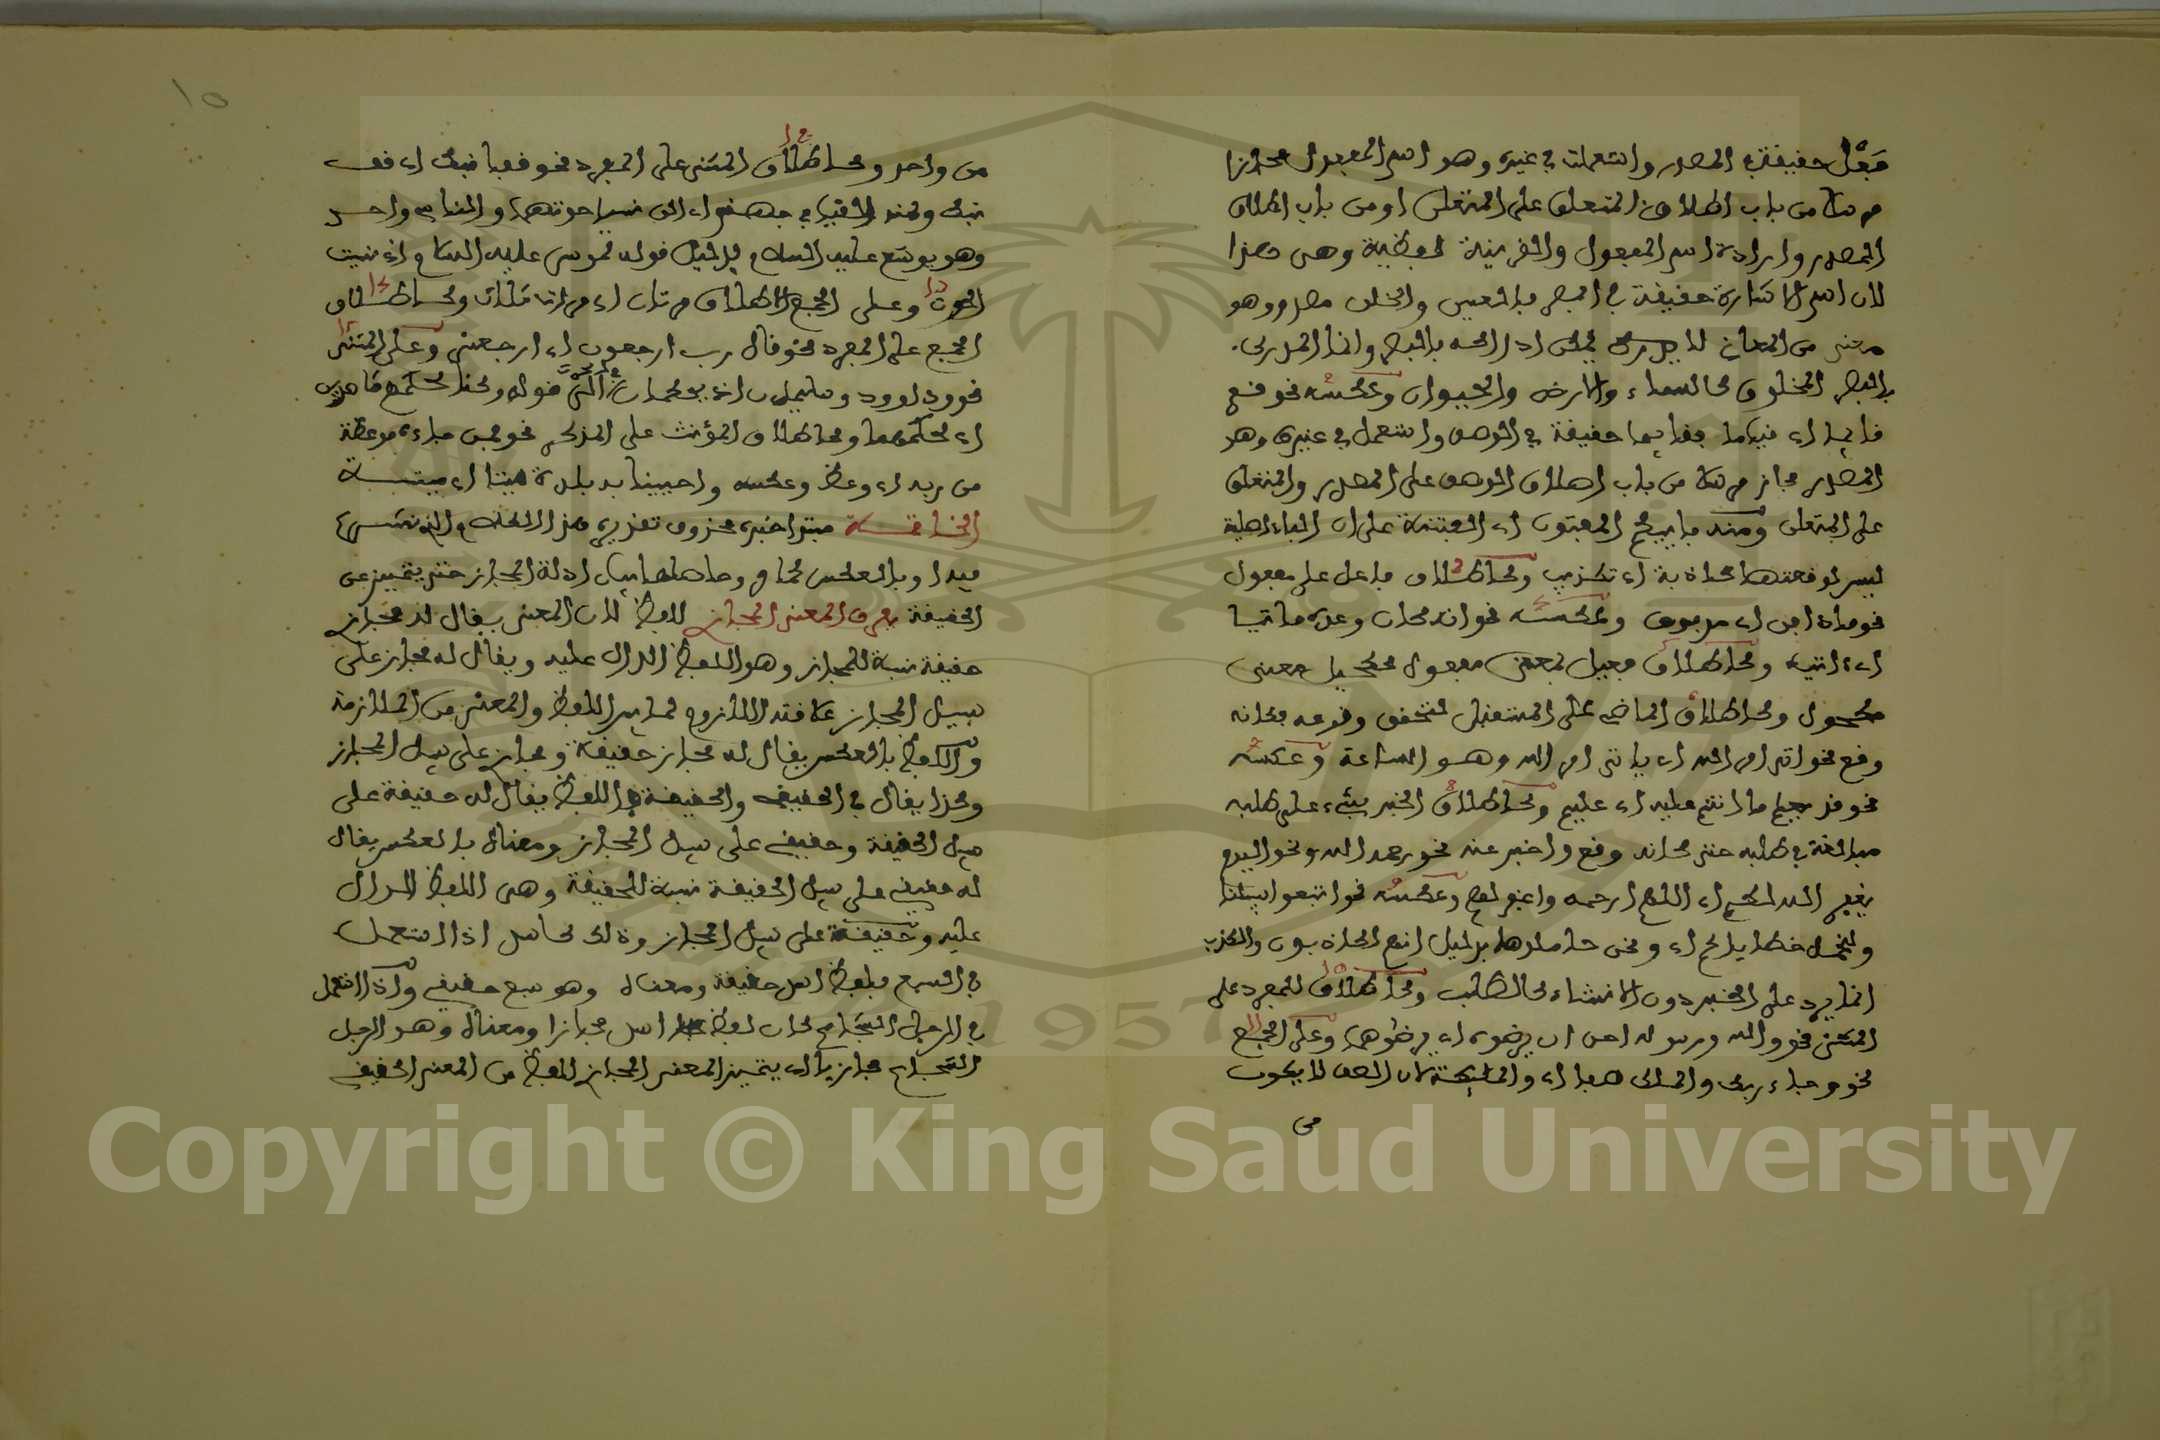 فعْل حقيقة في المصدر واستعملت في غيره وهو اسم المفعول مجازا
مرسلا من باب اطلاق المتعلق على المتعلق او من باب اطلاق
المصدر وارادة اسم المفعول والقرينة لفظية وهي هذا
لان اسم الاشارة حقيقة في المبصر بالعين والخلق مصدر وهو
معنى من المعان لا يدرك بالبصر وانما المدرك
بالبصر المخلوق كالسماء والارض والحيوان وعكسه نحو قم
قائما اي قياما فقائما حقيقة في الوصف واستعمل في غيره وهو
المصدر مجاز مرسلا من باب اطلاق الوصف على المصدر والمتعلق
على المتعلق ومنه باييكم المفتون اي الفتنة على ان الباء اصلية
ليس لوقعتها كاذبة اي تكذيب وكاطلاق فاعل على مفعول
نحو ماء دافق اي مدفوق وعكسه نحو انه كان وعده ماتيا
اي ءاتيا وكاطلاق فعيل بمعنى مفعول ككحيل بمعنى
مكحول وكاطلاق الماضي على المستقبل لتحقق وقوعه فكانه
وقع نحو اتى امر الله اي ياتي امر الله وهو الساعة وعكسه
نحو قد يعلم ما انتم عليه اي علم وكاطلاق الخبر بشيء على طلبه
مبالغة في طلبه حتى كانه وقع واخبر عنه نحو رحمه الله ونحو اليوم
يغفر الله لكم اي اللهم ارحمه واغفر لهم وعكسه نحو اتبعوا سبيلنا
ولنحمل خطاياكم اي ونحن حاملوها بدليل انهم لكاذبون والكذب
انما يرد على الخبر دون الانشاء كالطلب وكاطلاق المفرد على
المثنى نحو والله ورسوله احق ان يرضوه اي يرضوهما وعلى الجمع
نحو وجاء ربك والملك صفا اي والملائكة لان الصف لا يكون
من
١٥
من واحد وكاطلاق المثنى على المفرد نحو قفا نبك اي قف
نبك ونحو القيا في جهنم اي الق نسيا حوتهما والناسي واحد
وهو يوشع عليه السلام بدليل قوله لموسى عليه السلام اني نسيت
الحوت وعلى الجمع الطلاق مرتان اي مرات ثلاث وكاطلاق
الجمع على المفرد نحو قال رب ارجعون اي ارجعني وعلى المثنى
نحو وداوود وسليمان اذ يحكمان في الحرث قوله وكنا لحكمهم شاهدين
اي لحكمهما وكاطلاق المؤنث على المذكر نحو فمن جاءه موعظة
من ربه اي وعظ وعكسه واحيينا به بلدة ميتا اي ميتة
الخاتمة مبتدا خبره محذوف تقديره هذا الكلام الذي نشرع
فيه او بالعكس كما مر وحاصلها بيان ادلة المجاز حتى يتميز عن
الحقيقة يعرف المعنى المجازي للفظ لان المعنى يقال له مجازي
حقيقة نسبة للمجاز وهو اللفظ الدال عليه ويقال له مجاز على
سبيل المجاز علاقته اللازم لما بين اللفظ والمعنى من الملازمة
واللفظ بالعكس يقال له مجاز حقيقة ومجازي على سبيل المجاز
وكذا يقال في الحقيقي والحقيقة فاللفظ يقال له حقيقة على
سبيل الحقيقة وحقيقي على سبيل المجاز ومعناه بالعكس يقال
له حقيقي على سبيل الحقيقة نسبة للحقيقة وهي اللفظ الدال
عليه وحقيقة على سبيل المجاز وذلك كاسد اذا استعمل
في السبع فلفظ اسد حقيقة ومعناه وهو سبع حقيقي واذا استعمل
في الرجل الشجاع كان لفظ اسد مجازا ومعناه وهو الرجل
الشجاع مجازيا اي يتميز المعنى المجازي للفظ من المعنى الحقيقي
Copyright © King Saud University
1957